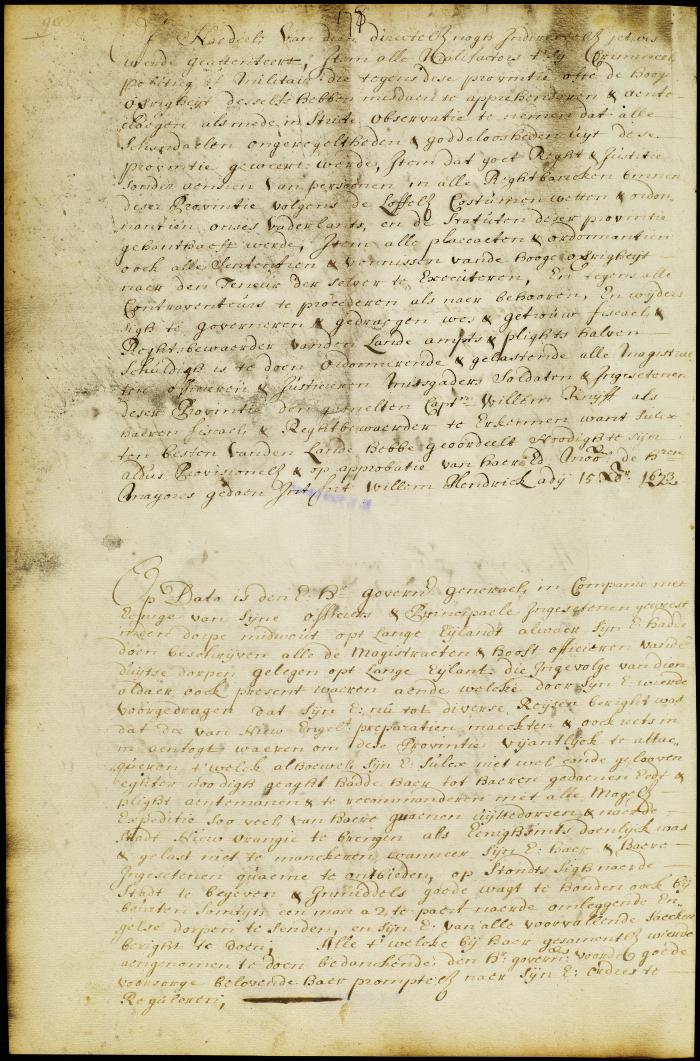 178
Nadeel van dien directelyk nogh Indirectelyk yetwes
werde geattenteert, Item alle Malefacteurs t'sy Crimineel
ofte Militair die tegens dese provintie ofte de hooge
overigheyt desselfs hebben misdaen te apprehenderen &
als mede in Stricte observatie te nemen dat alle
Schandaelen ongeregeltheden & goddeloosheden uyt dese
provintie geweert werde, Item dat goet Reght & Justitie
sonder aensien van persoonen in alle Reghtbancken binnen
deser Provintie volgens de Loffelyke Costumen wetten & ordon
nantien onses vaderlants, en de Statuten deser provintie
gehanthaeft werde, Item alle placcaten & ordonnantien
oock alle Sententien & vonnissen vande hooge overigheyt
naer den Teneur der selver te Executeren, En tegens alle
Contraventeurs te procederen als naer behooren, En wyders
sigh te governeren & gedraegen wes & getrouw fiscael &
Reghtsbewaerder vanden Lande ampts & plights halven
Schuldigh is te doen Ordonnerende & gelastende alle Magistra
ten officieren & Justicieren mitsgaders Soldaten & Ingesetenen
deser Provintie den gemelten Capt.n Willem Knyff als
haeren fiscael & Reghtbewaerder te Erkennen want Sulx
ten besten vanden Lande hebbe geoordeelt noodigh te syn
aldus Provisioneel & op approbatie van haer Ed. Moo: de hren
Majores gedaen Int fort Willem Hendrick ady 15 Xbr. 1673
Op Dato is den E: Hr. govern.r generael, in Companie met
Eenige van Syne officiers & Principaele Ingesetenen geweest
in den dorpe midwout opt Lange Eylandt alwaer Syn E: hadde
doen beschryven alle de Magistraeten & hooft officieren vande
duytse dorpen gelegen opt Lange Eylant. die Ingevolge van dien
aldaer oock present waeren aende welcke door Syn E: wierde
voorgedragen dat Syn E: nu tot diverse Reysen beright was
dat die van Nieu Engelt preparatien maeckten & oock reets in
waeren om dese Provintie vyantlyck te attac
queren t'welck alhoewel Syn E: Sulcx niet wel conde gelooven
eghter noodigh geaght hadde haer tot haeren gedaenen Eedt &
plight aentemanen & te recommanderen met alle Mogel
Expeditie Soo veel van haere graenen uyttedorsen & naer de
Stadt Nieu orangie te brengen als Eenighsints doenlyck was
& gelast niet te manckeren wanneer Syn E: haer & haere
Ingesetenen quaeme te ontbieden, op Stondts Sigh naerde
Stadt te begeven & Inmiddels goede wagt te houden oock by
beurten Somtyts een man a 2, te paert naerde omleggende En
gelse dorpen te senden, en Syn E: van alle voorvallende saecken
beright te doen; Alle t'welcke by haer gesamentlyk wierde
aengenomen te doen bedanckende den Hr. govern.r voor de goede
voorsorge beloovende haer promptelyk naer Syn E: orders te
Reguleren,